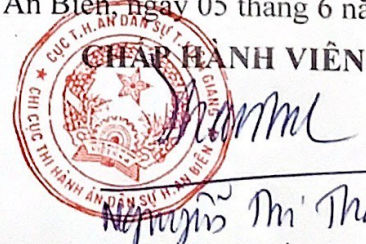 An Biên, ngày 05 tháng 6 nă
CHẤP HÀNH VIÊN
CỤC T.H.ÁN DÂN SỰ T. GIANG
★ CHI CỤC THI HÀNH ÁN DÂN SỰ H. AN BIÊN
Nguyễn Thị Th